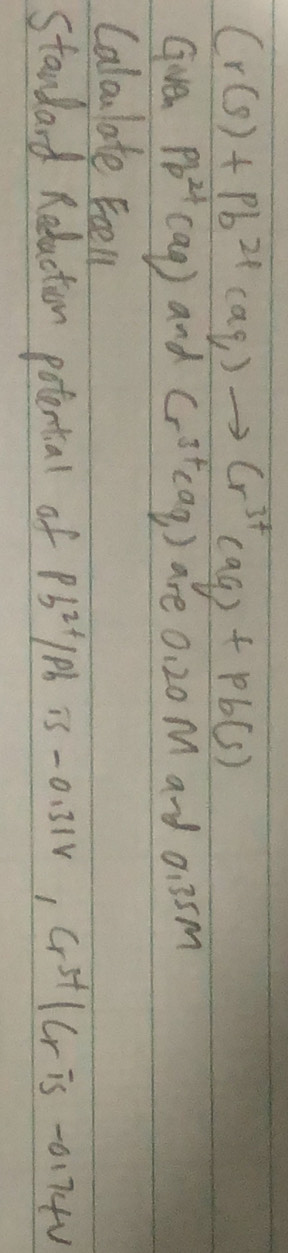 Cr(s) + Pb²⁺(aq) → Cr³⁺(aq) + Pb(s)
Given Pb²⁺(aq) and Cr³⁺(aq) are 0.20 M and 0.35M
Calculate Ecell
Standard Reduction potential of Pb²⁺/Pb is -0.31V , Cr³⁺/Cr is -0.74V